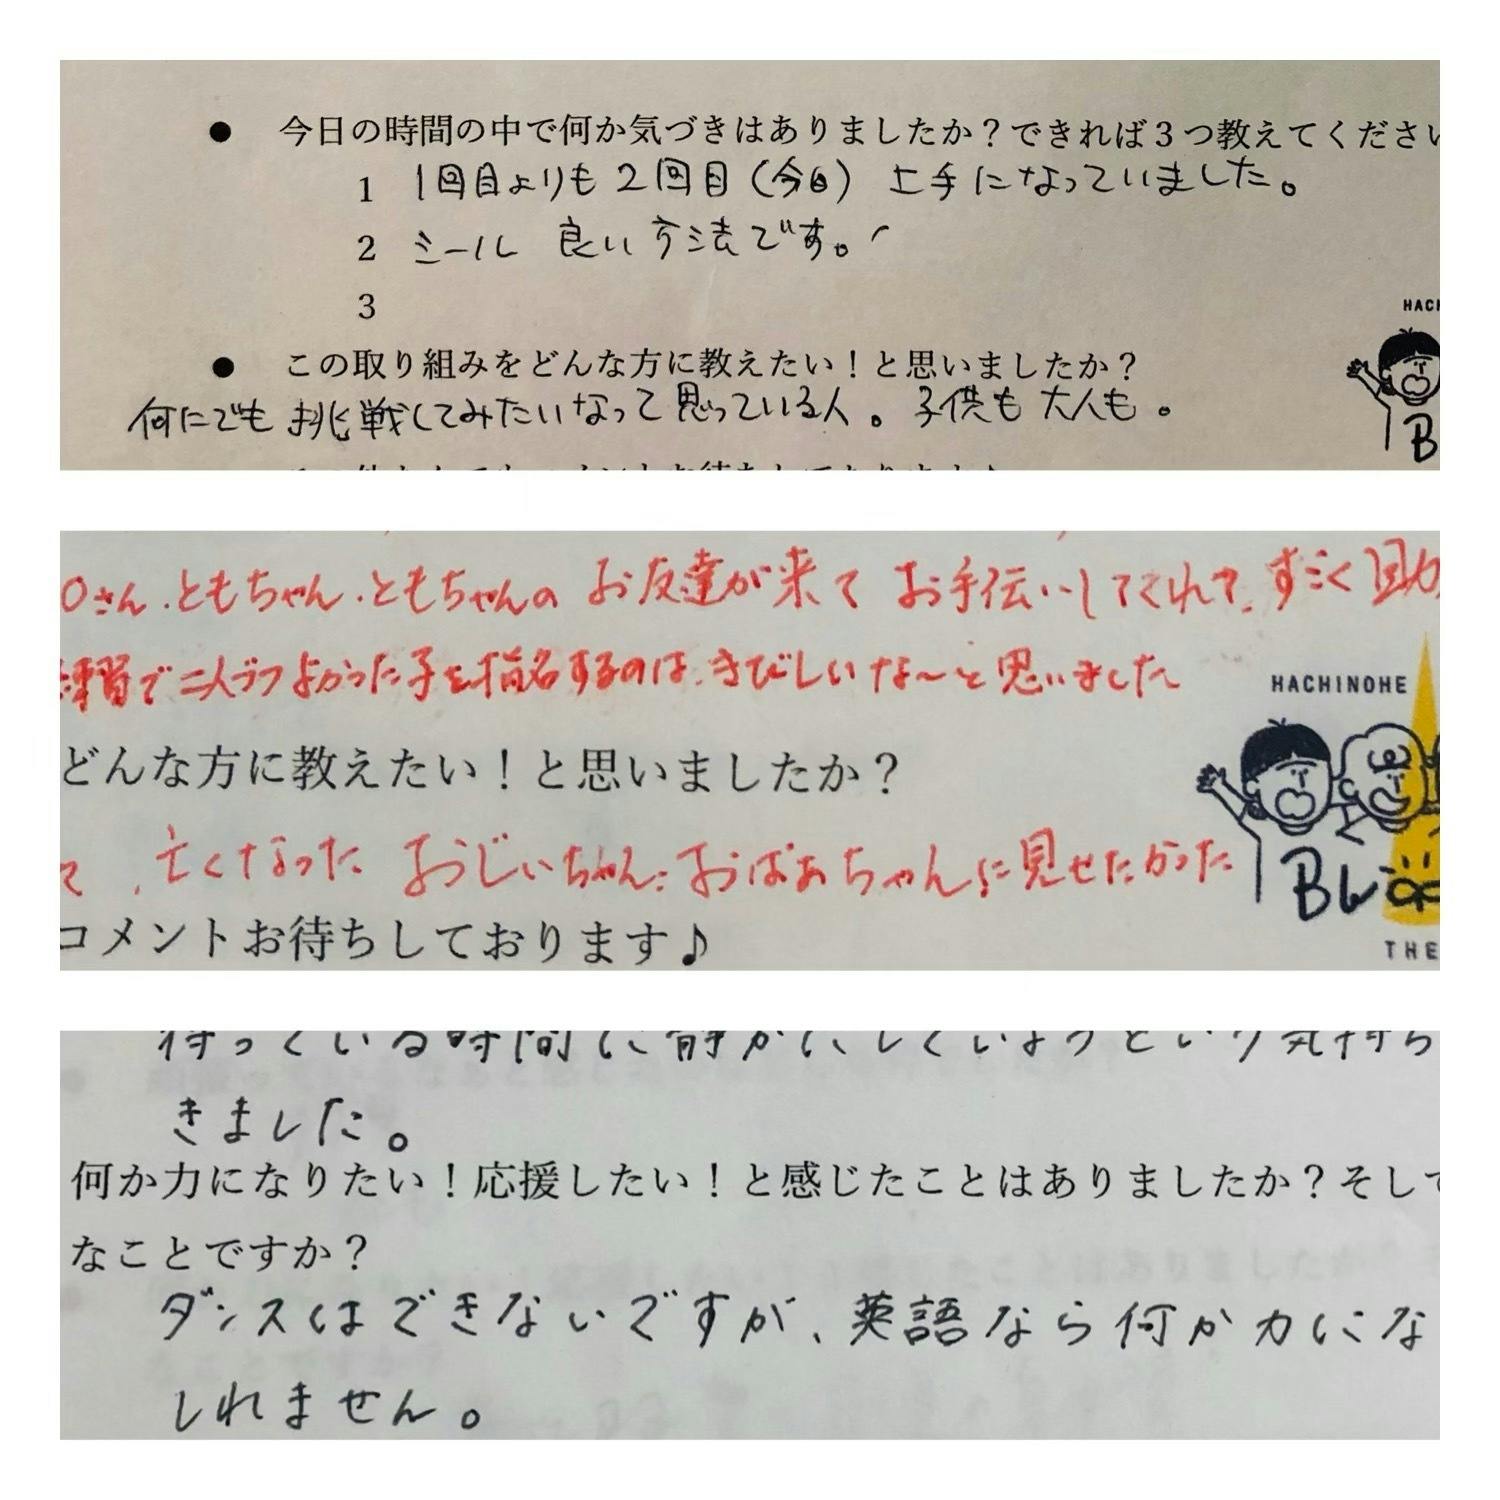 ● 今日の時間の中で何か気づきはありましたか？できれば３つ教えてください
1 1回目よりも2回目（今日）上手になっていました。
2 ミール 良い方法です。
3
● この取り組みをどんな方に教えたい！と思いましたか？
何にでも挑戦してみたいなって思っている人。子供も大人も。
HACH
B
Oさん．ともちゃん．ともちゃんのお友達が来てお手伝いしてくれて、すごく助か
練習で二人ずつよかった子を指名するのは、きびしいな〜と思いました
HACHINOHE
どんな方に教えたい！と思いましたか？
て、亡くなったおじいちゃん、おばあちゃんに見せたかった
コメントお待ちしております♪
THE
待っている時間に静かにしていようという気持ち
きました。
何か力になりたい！応援したい！と感じたことはありましたか？そして
なことですか？
ダンスはできないですが、英語なら何か力にな
しれません。